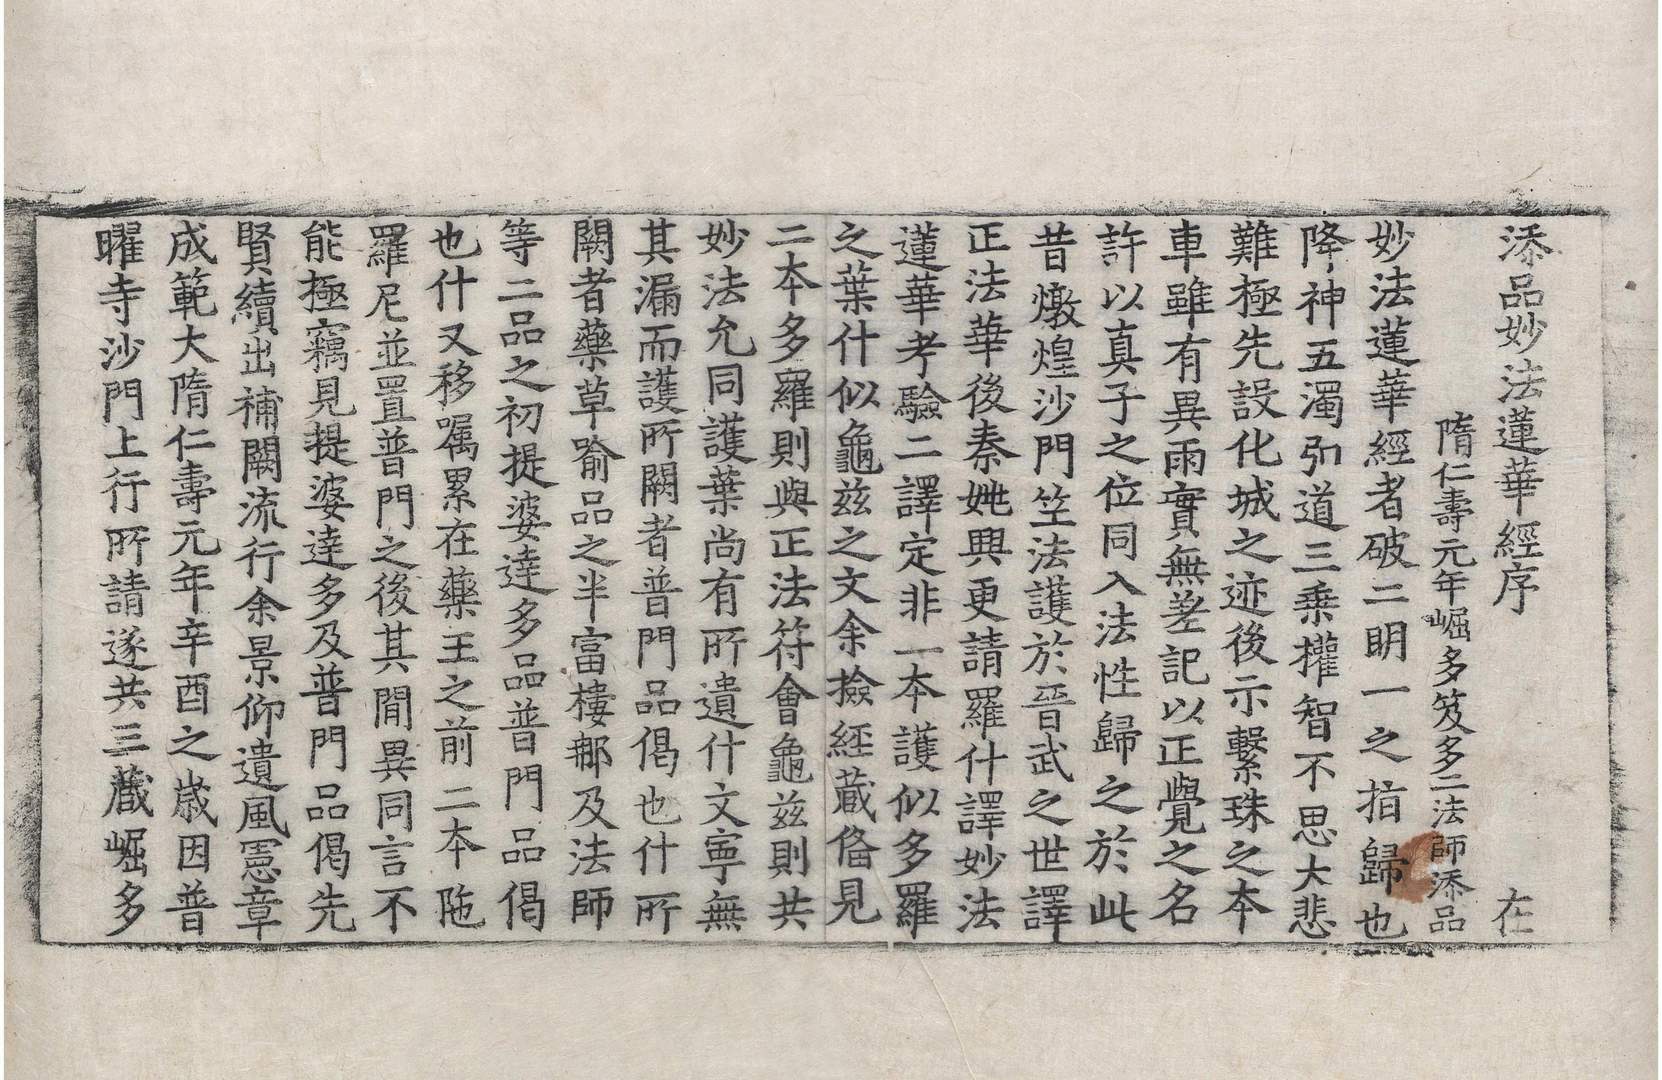 添品妙法蓮華經序 在
隋仁壽元年崛多笈多二法師添品
妙法蓮華經者破二明一之指歸也
降神五濁弘道三乗權智不思大悲
難極先設化城之迹後示繫珠之本
車雖有異雨實無差記以正覺之名
許以真子之位同入法性歸之於此
昔燉煌沙門竺法護於晉武之世譯
正法華後秦姚興更請羅什譯妙法
蓮華考驗二譯定非一本護似多羅
之葉什似龜茲之文余撿經蔵俻見
二本多羅則與正法符會龜茲則共
妙法允同護葉尚有所遺什文寧無
其漏而護所闕者普門品偈也什所
闕者藥草喻品之半富樓那及法師
等二品之初提婆達多品普門品偈
也什又移嘱累在藥王之前二本陁
羅尼並置普門之後其間異同言不
能極竊見提婆達多及普門品偈先
賢續出補闕流行余景仰遺風憲章
成範大隋仁壽元年辛酉之歲因普
曜寺沙門上行所請遂共三藏崛多